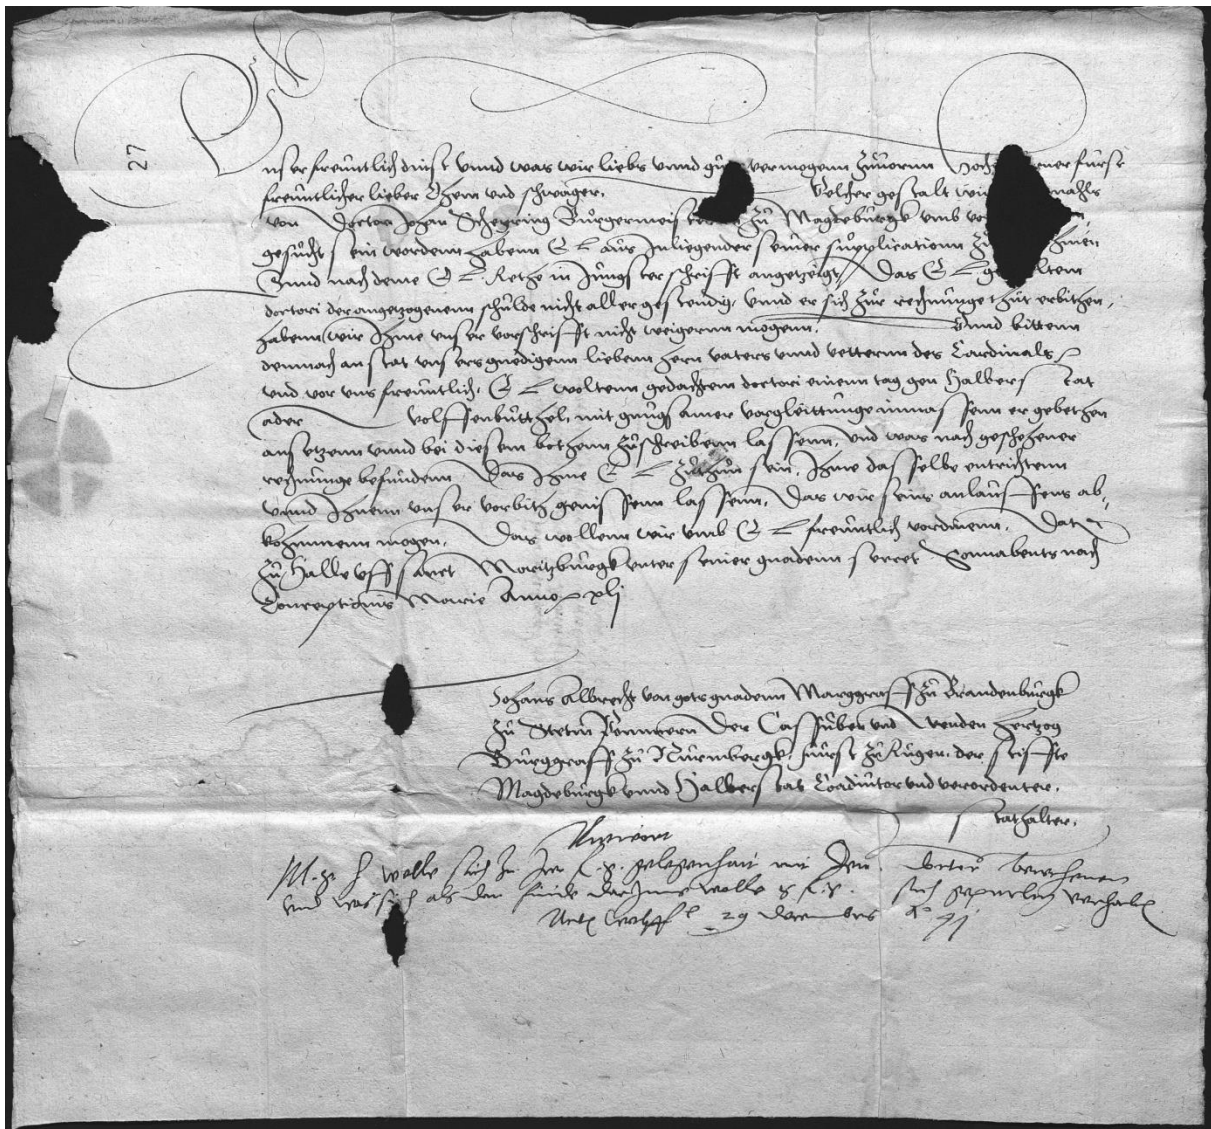 27
Unser freuntlich dinst vnnd was wir liebs vnnd guts vermogenn zuuornn Hochgeborner furst
freuntlicher lieber Ohem vnd schwager. Welcher gestalt wir mahls
von Doctor Johan Scheyring Burgermeistern zu Magdeburgk vmb
gesucht sein wordenn habenn E L aus Inliegender seiner supplicationn zu
Vnnd nach deme E L Rethe in Jungster schrifft angetzeigt Das E L
doctori der angetzogenenn schulde nicht aller gestendig, vnnd er sich zur rechnunge thut erbithen,
habenn wir Ihme vnser vorschrifft nicht weigernn mogenn. Vnnd bittenn
demnach anstat vnsers gnedigenn liebenn hern vaters vnnd vetternn des Cardinals
vnd vor vns freuntlich, E L woltenn gedachtem doctori einenn tag gen Halberstat
ader Wolffenbutthel, mit gnugsamer vorgleittunge inmassenn er gebethen
ansetzenn vnnd bei diesem bothenn zuschreibenn lassenn, vnd was nach geschehener
rechnunge befundenn, Das Ihme E L zuthun sein, Ihme dasselbe entrichtenn
vnnd Ihnenn vnser vorbith genissenn lassenn, Das wir seins anlauffens ab,
kohmmenn mogen, Das wollenn wir vmb E L freuntlich vordinenn, Dat
zu Halle vff sanct Moritzburgk vnter seiner gnadenn secret Sonnabents nach
Conceptionis Marie Anno xlj
Johans Albrecht von gots gnadenn Marggraff zu Brandenburgk
zu Stetin Pommern der Cassuben vnd Wenden hertzog
Burggraff zu Nurmbergk, furst zu Rugen, der stiffte
Magdeburgk vnnd Halberstat Coadiutor vnd verordenter,
stathalter,
M. g. h wolle sich zu gelegenhait mit
vnd was sich als den finde wolle s. f. g. sich
Wolff 29 decembris